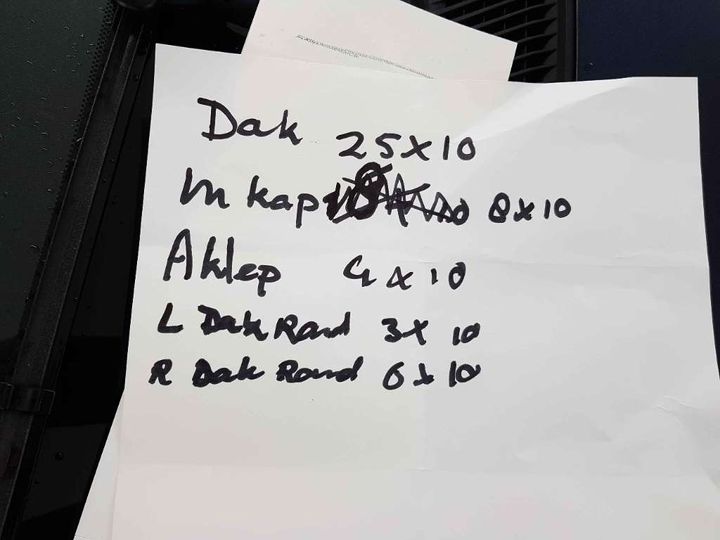 Dak 25x10
M kap 8x10
Aklep 4x10
L Dak Rand 3x10
R Dak Rand 6x10